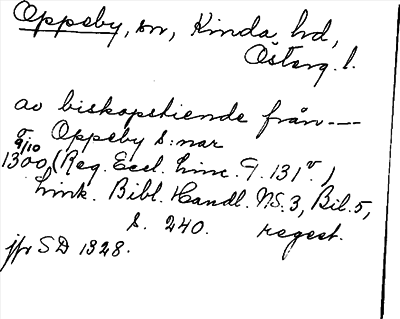 Oppeby, sn, Kinda hd,
Österg. l.
av biskopstiende från ---
Oppeby s:nar
9/10
1300, (Reg. Eccl. Linc. F. 131 v.)
Link. Bibl. Handl. NS. 3, Bil. 5,
s. 240. regest.
jfr SD 1328.